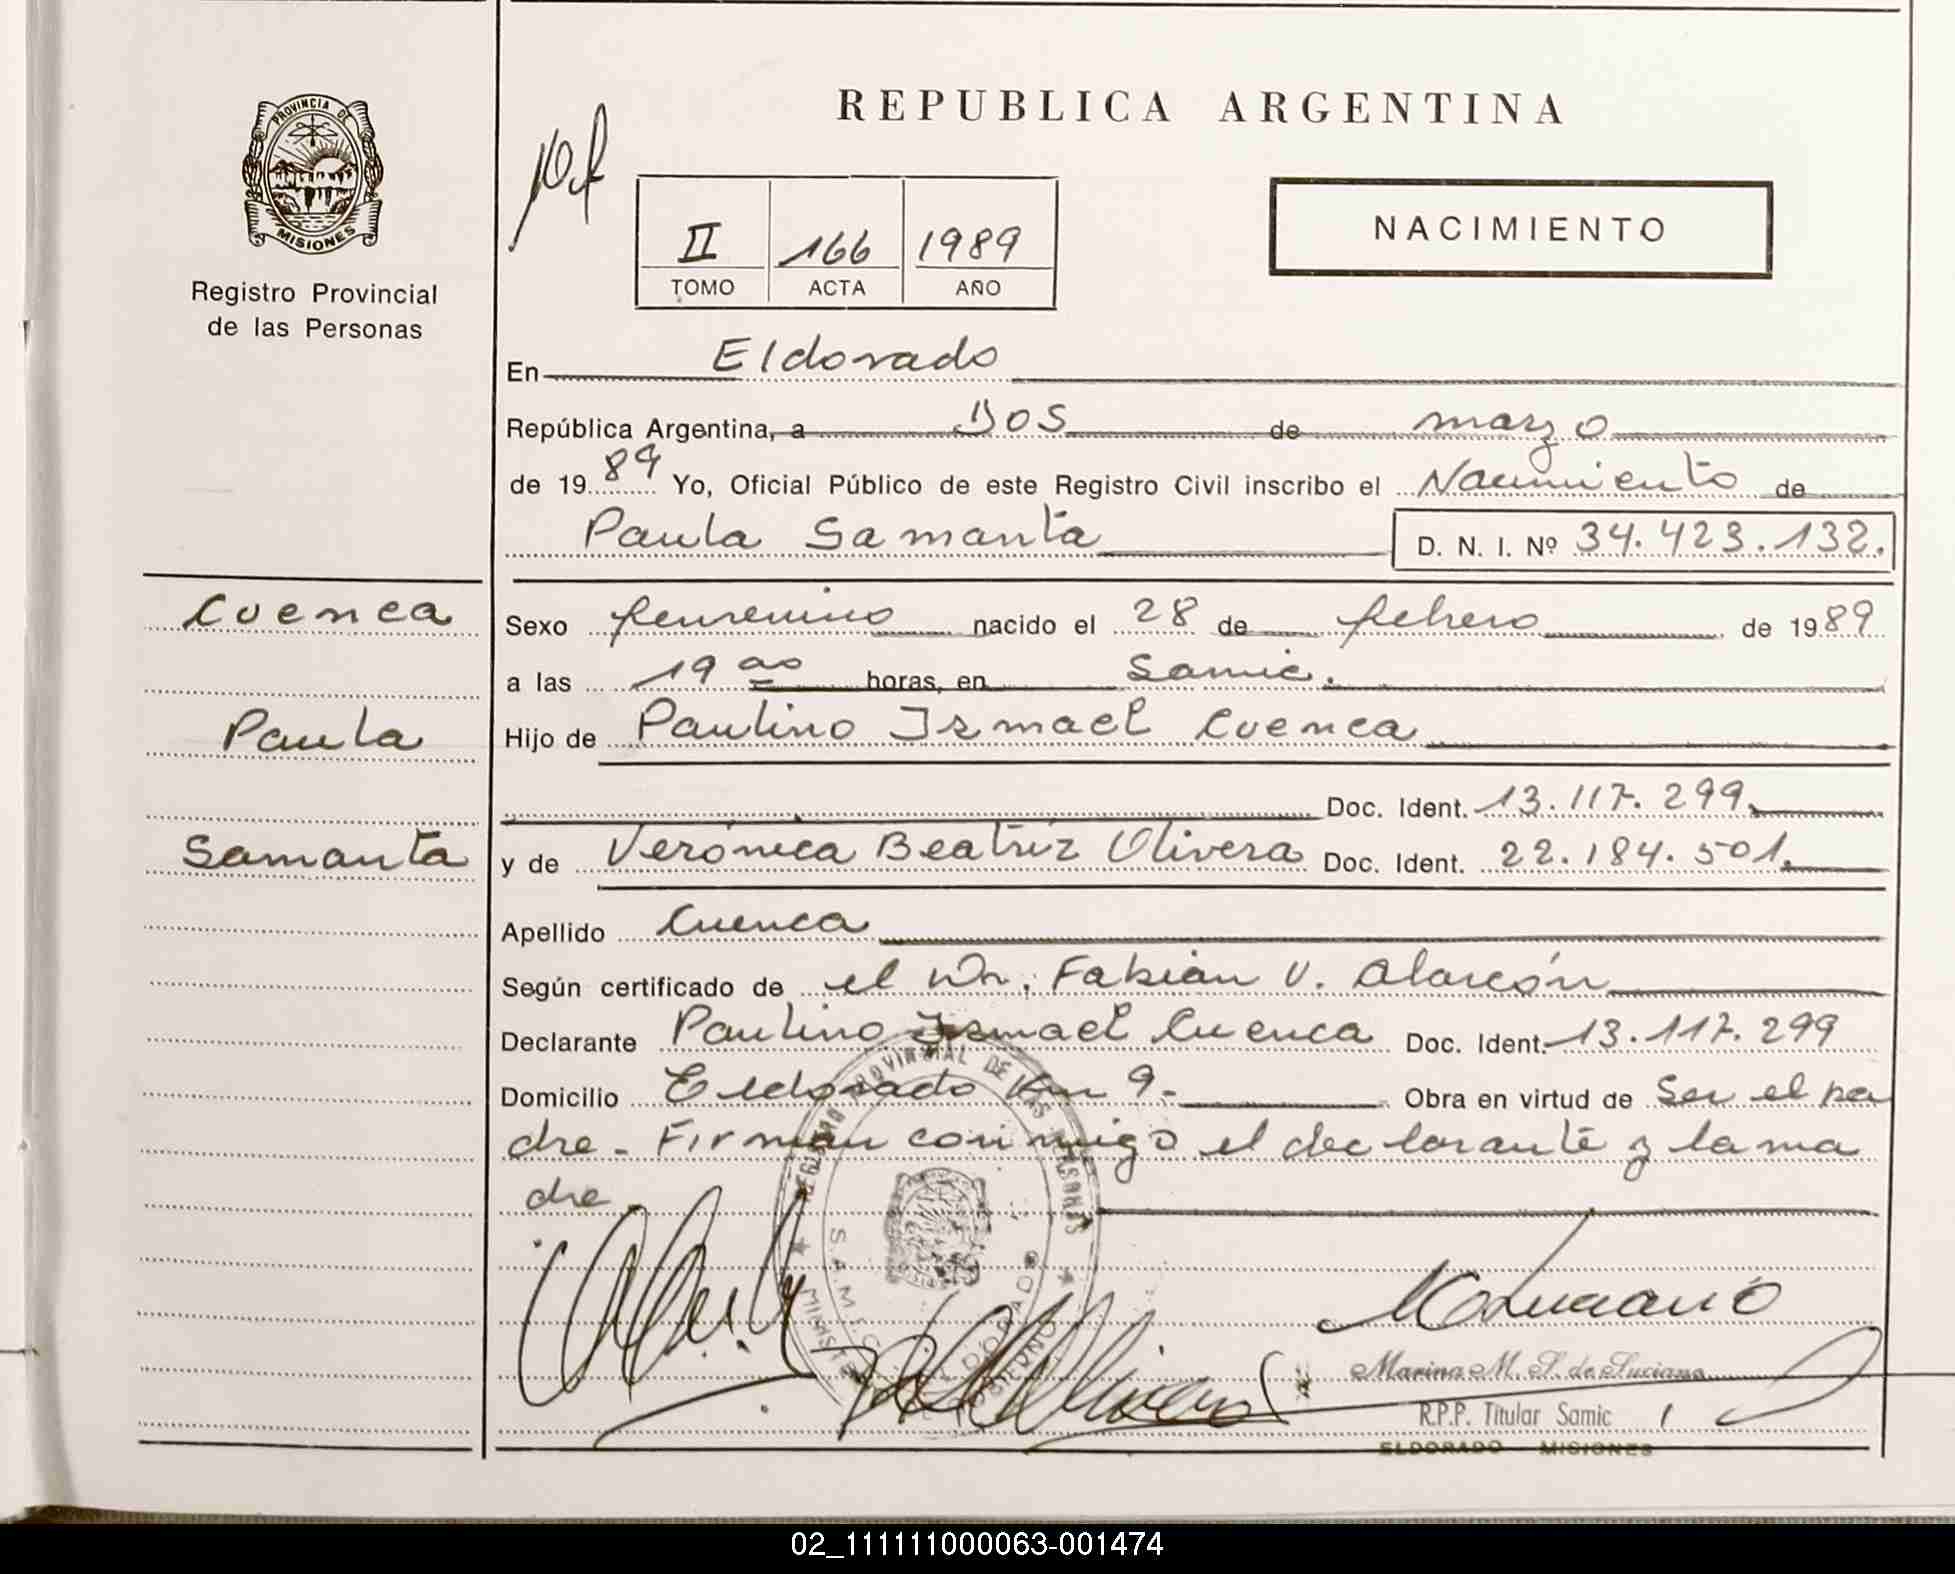 PROVINCIA DE
MISIONES
Registro Provincial
de las Personas
REPUBLICA ARGENTINA
II 166 1989
TOMO ACTA AÑO
NACIMIENTO
En Eldorado
República Argentina, a Dos de marzo
de 1989 Yo, Oficial Público de este Registro Civil inscribo el Nacimiento de
Paula Samanta D. N. I. Nº 34.423.132.
Cuenca
Paula
Samanta
Sexo femenino nacido el 28 de febrero de 1989
a las 19 horas, en Samic.
Hijo de Paulino Ismael Cuenca
Doc. Ident. 13.117.299.
y de Verónica Beatriz Olivera Doc. Ident. 22.184.501.
Apellido Cuenca
Según certificado de el Dr. Fabián V. Alarcón
Declarante Paulino Ismael Cuenca Doc. Ident. 13.117.299
Domicilio Eldorado Km 9.- Obra en virtud de Ser el pa
dre - Firman conmigo el declarante y la ma
dre
REGISTRO PROVINCIAL DE LAS PERSONAS
S.A.M.I.C. ELDORADO
Marina M. S. de Luciano
R.P.P. Titular Samic
ELDORADO MISIONES
02_111111000063-001474